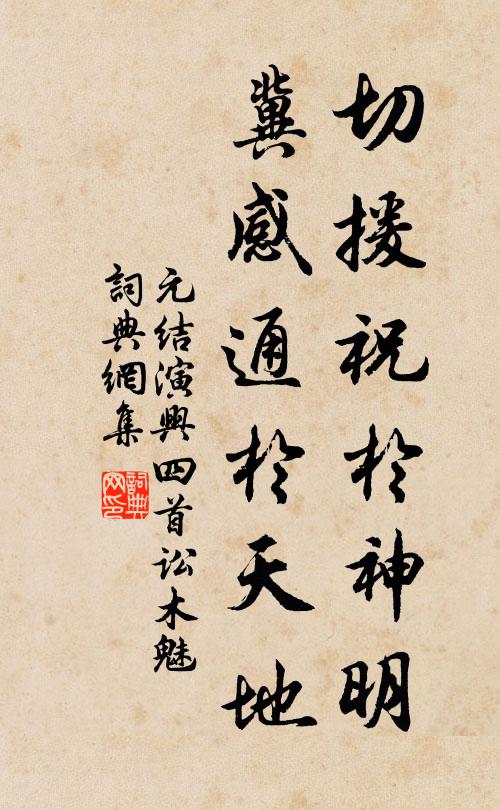 切援祝於神明
冀感通於天地
元结演興四首讼木魅
詞典網集
詞典网印